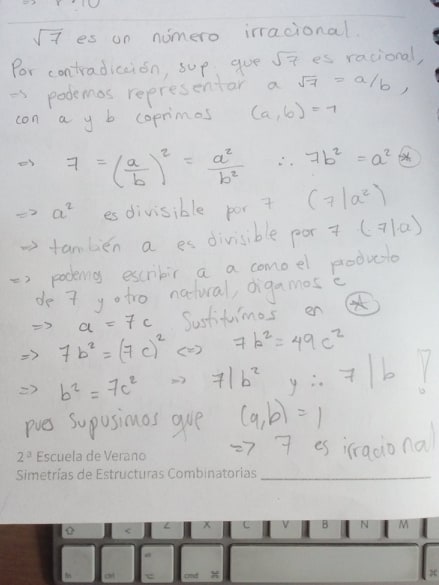 √7 es un número irracional.
Por contradicción, sup. que √7 es racional,
=> podemos representar a √7 = a/b,
con a y b coprimos (a,b) = 1
=> 7 = (a/b)² = a²/b² ∴ 7b² = a² ⊛
=> a² es divisible por 7 (7|a²)
=> también a es divisible por 7 (7|a)
=> podemos escribir a a como el producto
de 7 y otro natural, digamos c
=> a = 7c Sustituimos en ⊛
=> 7b² = (7c)² <=> 7b² = 49c²
=> b² = 7c² => 7|b² y ∴ 7|b !
pues supusimos que (a,b) = 1
=> 7 es irracional
2ª Escuela de Verano
Simetrías de Estructuras Combinatorias
Z X C V B N M
fn ctrl alt cmd ⌘